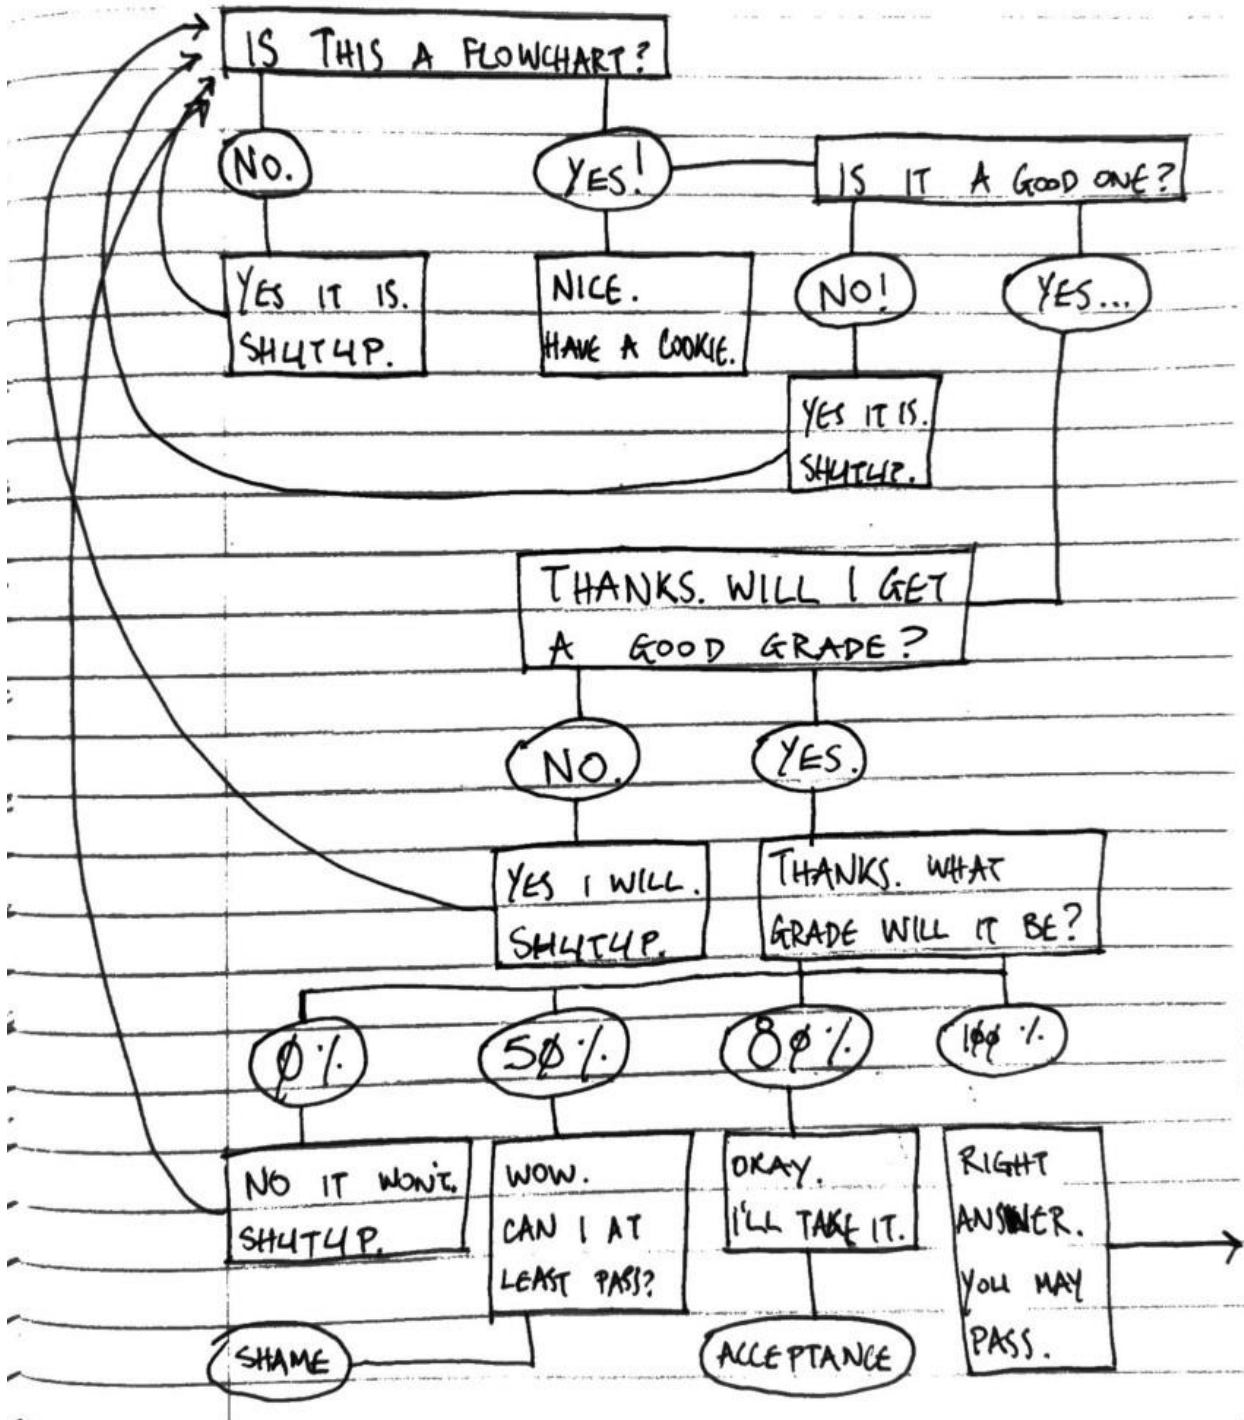 IS THIS A FLOWCHART?
NO.
YES!
IS IT A GOOD ONE?
YES IT IS.
SHUTUP.
NICE.
HAVE A COOKIE.
NO!
YES...
YES IT IS.
SHUTUP.
THANKS. WILL I GET
A GOOD GRADE?
NO.
YES.
YES I WILL.
SHUTUP.
THANKS. WHAT
GRADE WILL IT BE?
0%
50%
80%
100%
NO IT WON'T.
SHUTUP.
WOW.
CAN I AT
LEAST PASS?
OKAY.
I'LL TAKE IT.
RIGHT
ANSWER.
YOU MAY
PASS.
SHAME
ACCEPTANCE